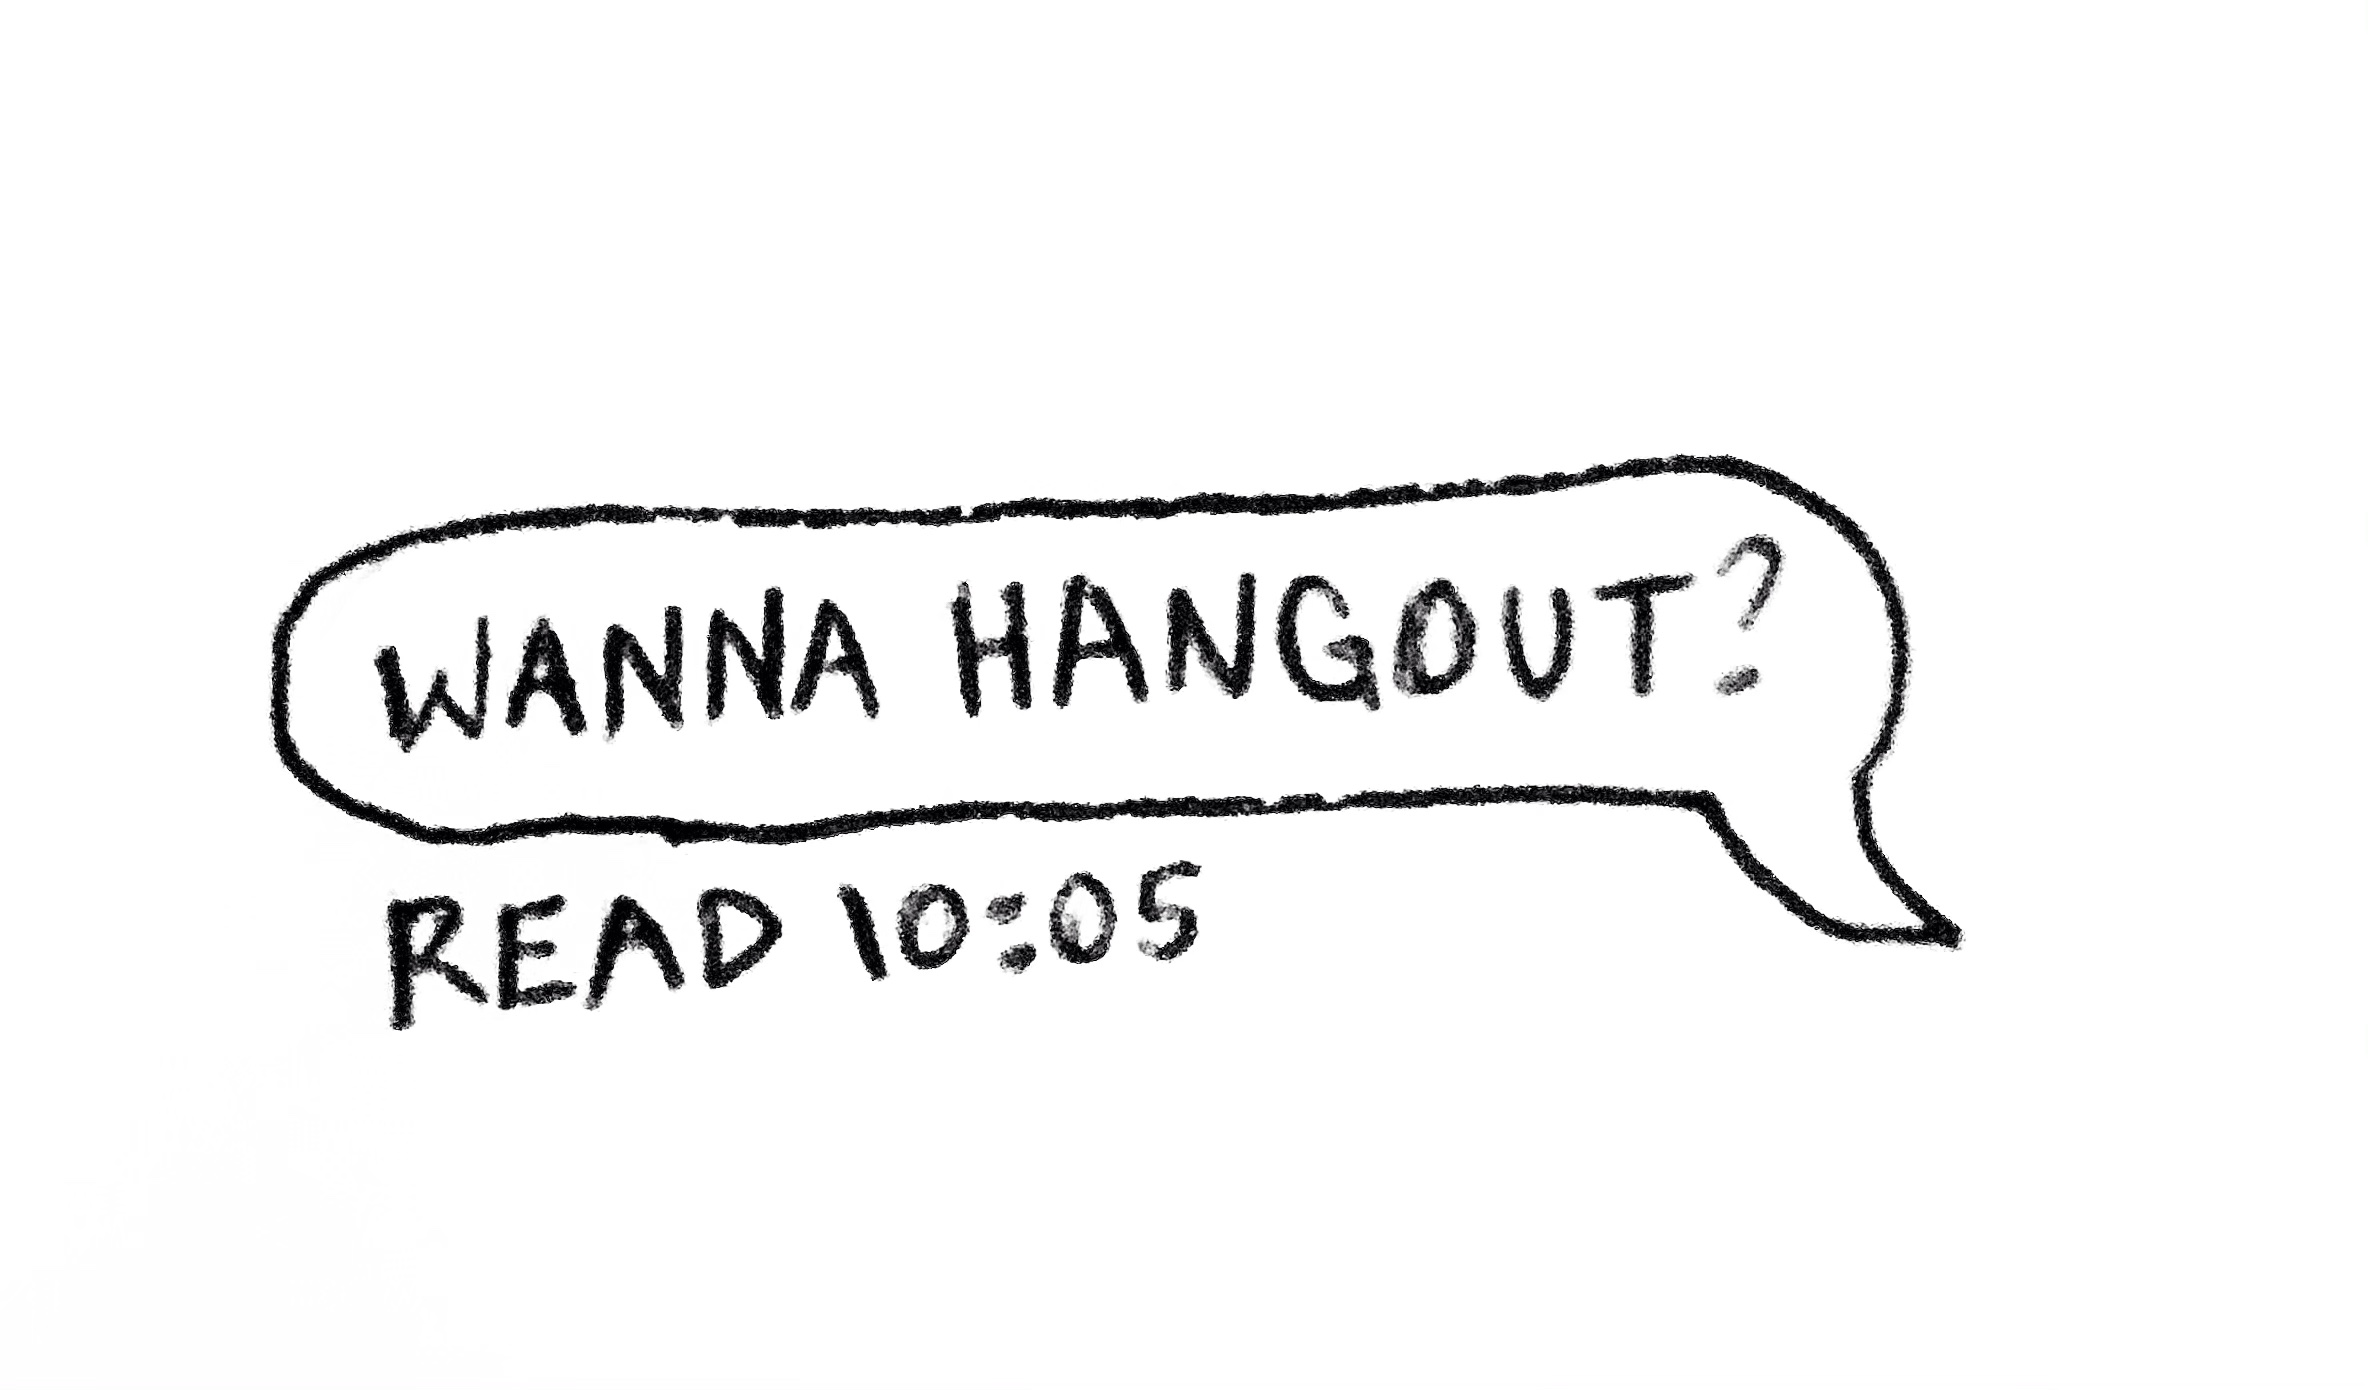 WANNA HANGOUT?
READ 10:05